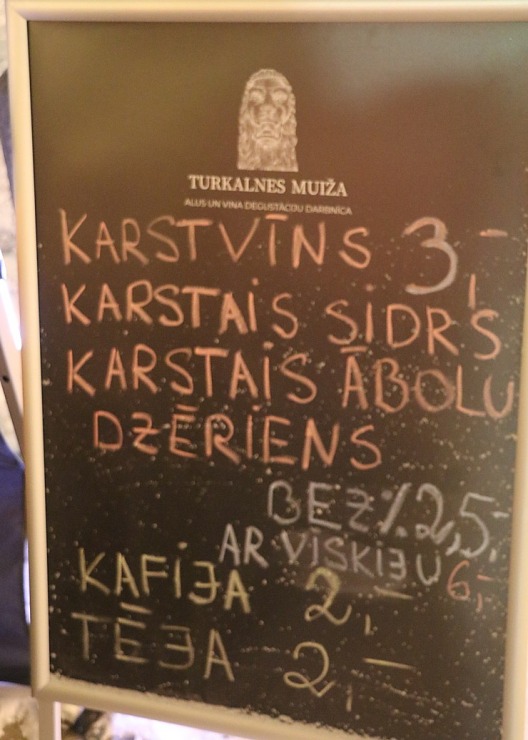 TURKALNES MUIŽA
ALUS UN VĪNA DEGUSTĀCIJU DARBNĪCA
KARSTVĪNS 3,-
KARSTAIS SIDRS
KARSTAIS ĀBOLU
DZĒRIENS
BEZ % 2,5,-
AR VISKIJU 6,-
KAFIJA 2,-
TĒJA 2,-